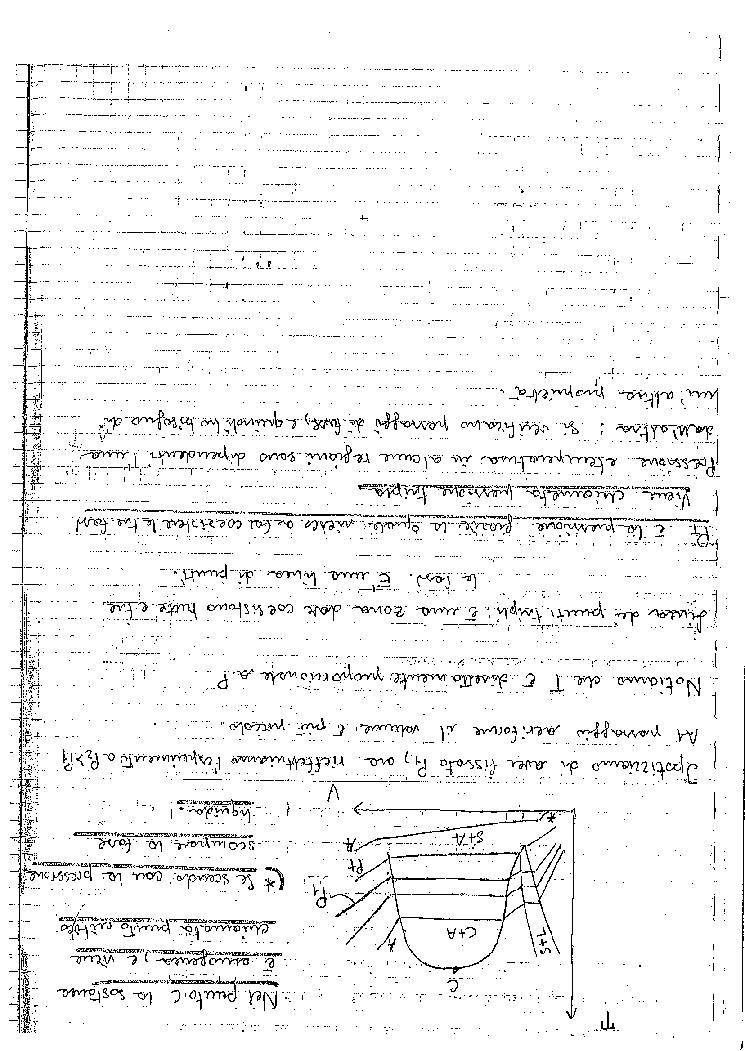 T
C
Nel punto C la sostanza
è omogenea, e viene
chiamata punto critico
S+L
A
P1
Pt
A
S+A
*
V
* Se scendo con la pressione
scompare la fase
liquida!
Ipotizziamo di aver fissato P1, ora rieffettuiamo l'esperimento a P2>P1
Al passaggio aeriforme il volume è più piccolo.
Notiamo che T è direttamente proporzionale a P
Linea dei punti tripli: è una zona dove coesistono tutte e tre
le fasi. È una linea di punti.
Pt È la pressione grazie la quale riesco a far coesistere le tre fasi
Viene chiamata pressione tripla
Pressione e temperatura in alcune regioni sono dipendenti l'una
dall'altra: si verificano passaggi di fase, e quindi ho bisogno di
un'altra proprietà.